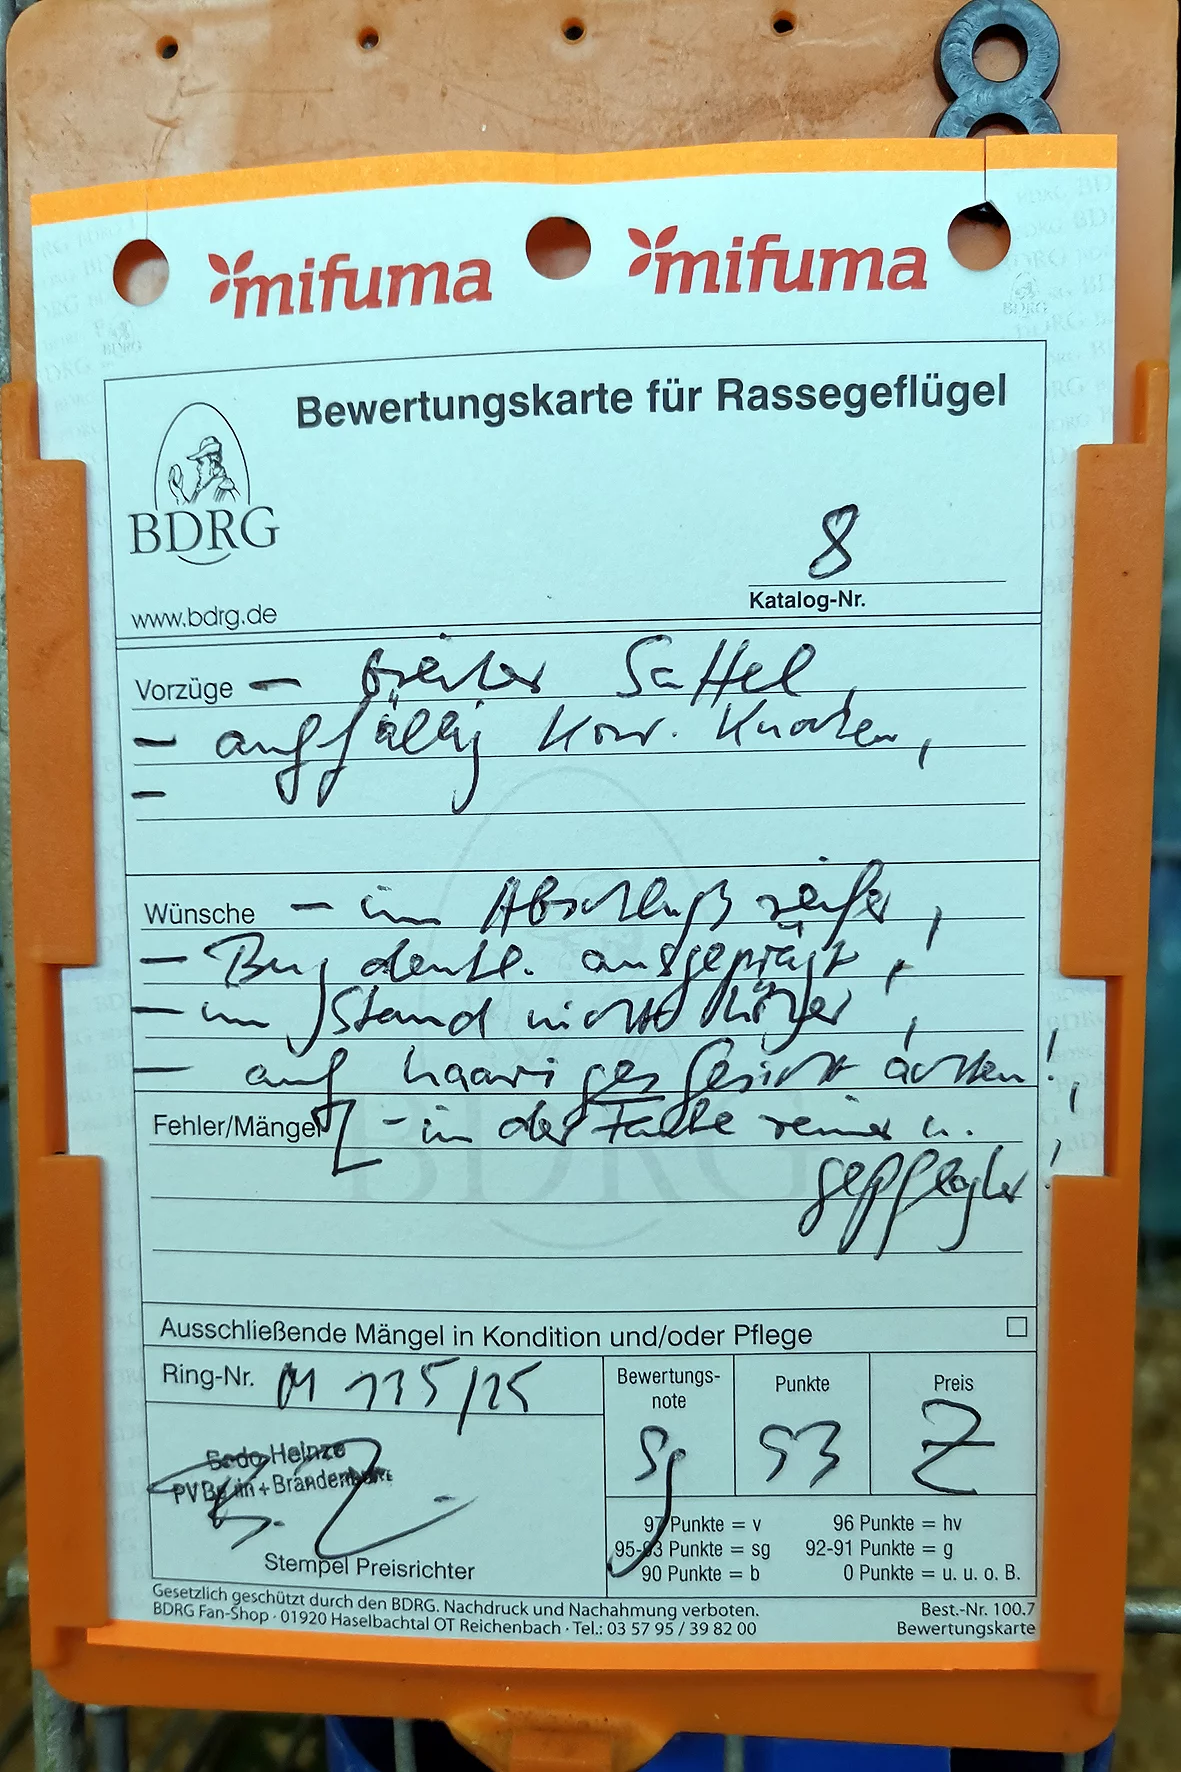 8
mifuma mifuma
Bewertungskarte für Rassegeflügel
BDRG
www.bdrg.de
8
Katalog-Nr.
Vorzüge – breiter Sattel,
– auffällig
–
Wünsche – im Abschluß reifer,
– Bug deutl. ausgeprägt,
– im Stand nicht höher,
– auf haariges Gesicht achten!,
Fehler/Mängel – in der Farbe reiner u.
gepflegter!
Ausschließende Mängel in Kondition und/oder Pflege
Ring-Nr. M 115/25
Bewertungs-
note
Punkte
Preis
Sg 93 Z
Bodo Heinze
PV Berlin + Brandenburg
Stempel Preisrichter
97 Punkte = v 96 Punkte = hv
95-93 Punkte = sg 92-91 Punkte = g
90 Punkte = b 0 Punkte = u. u. o. B.
Gesetzlich geschützt durch den BDRG. Nachdruck und Nachahmung verboten.
BDRG Fan-Shop · 01920 Haselbachtal OT Reichenbach · Tel.: 03 57 95 / 39 82 00
Best.-Nr. 100.7
Bewertungskarte